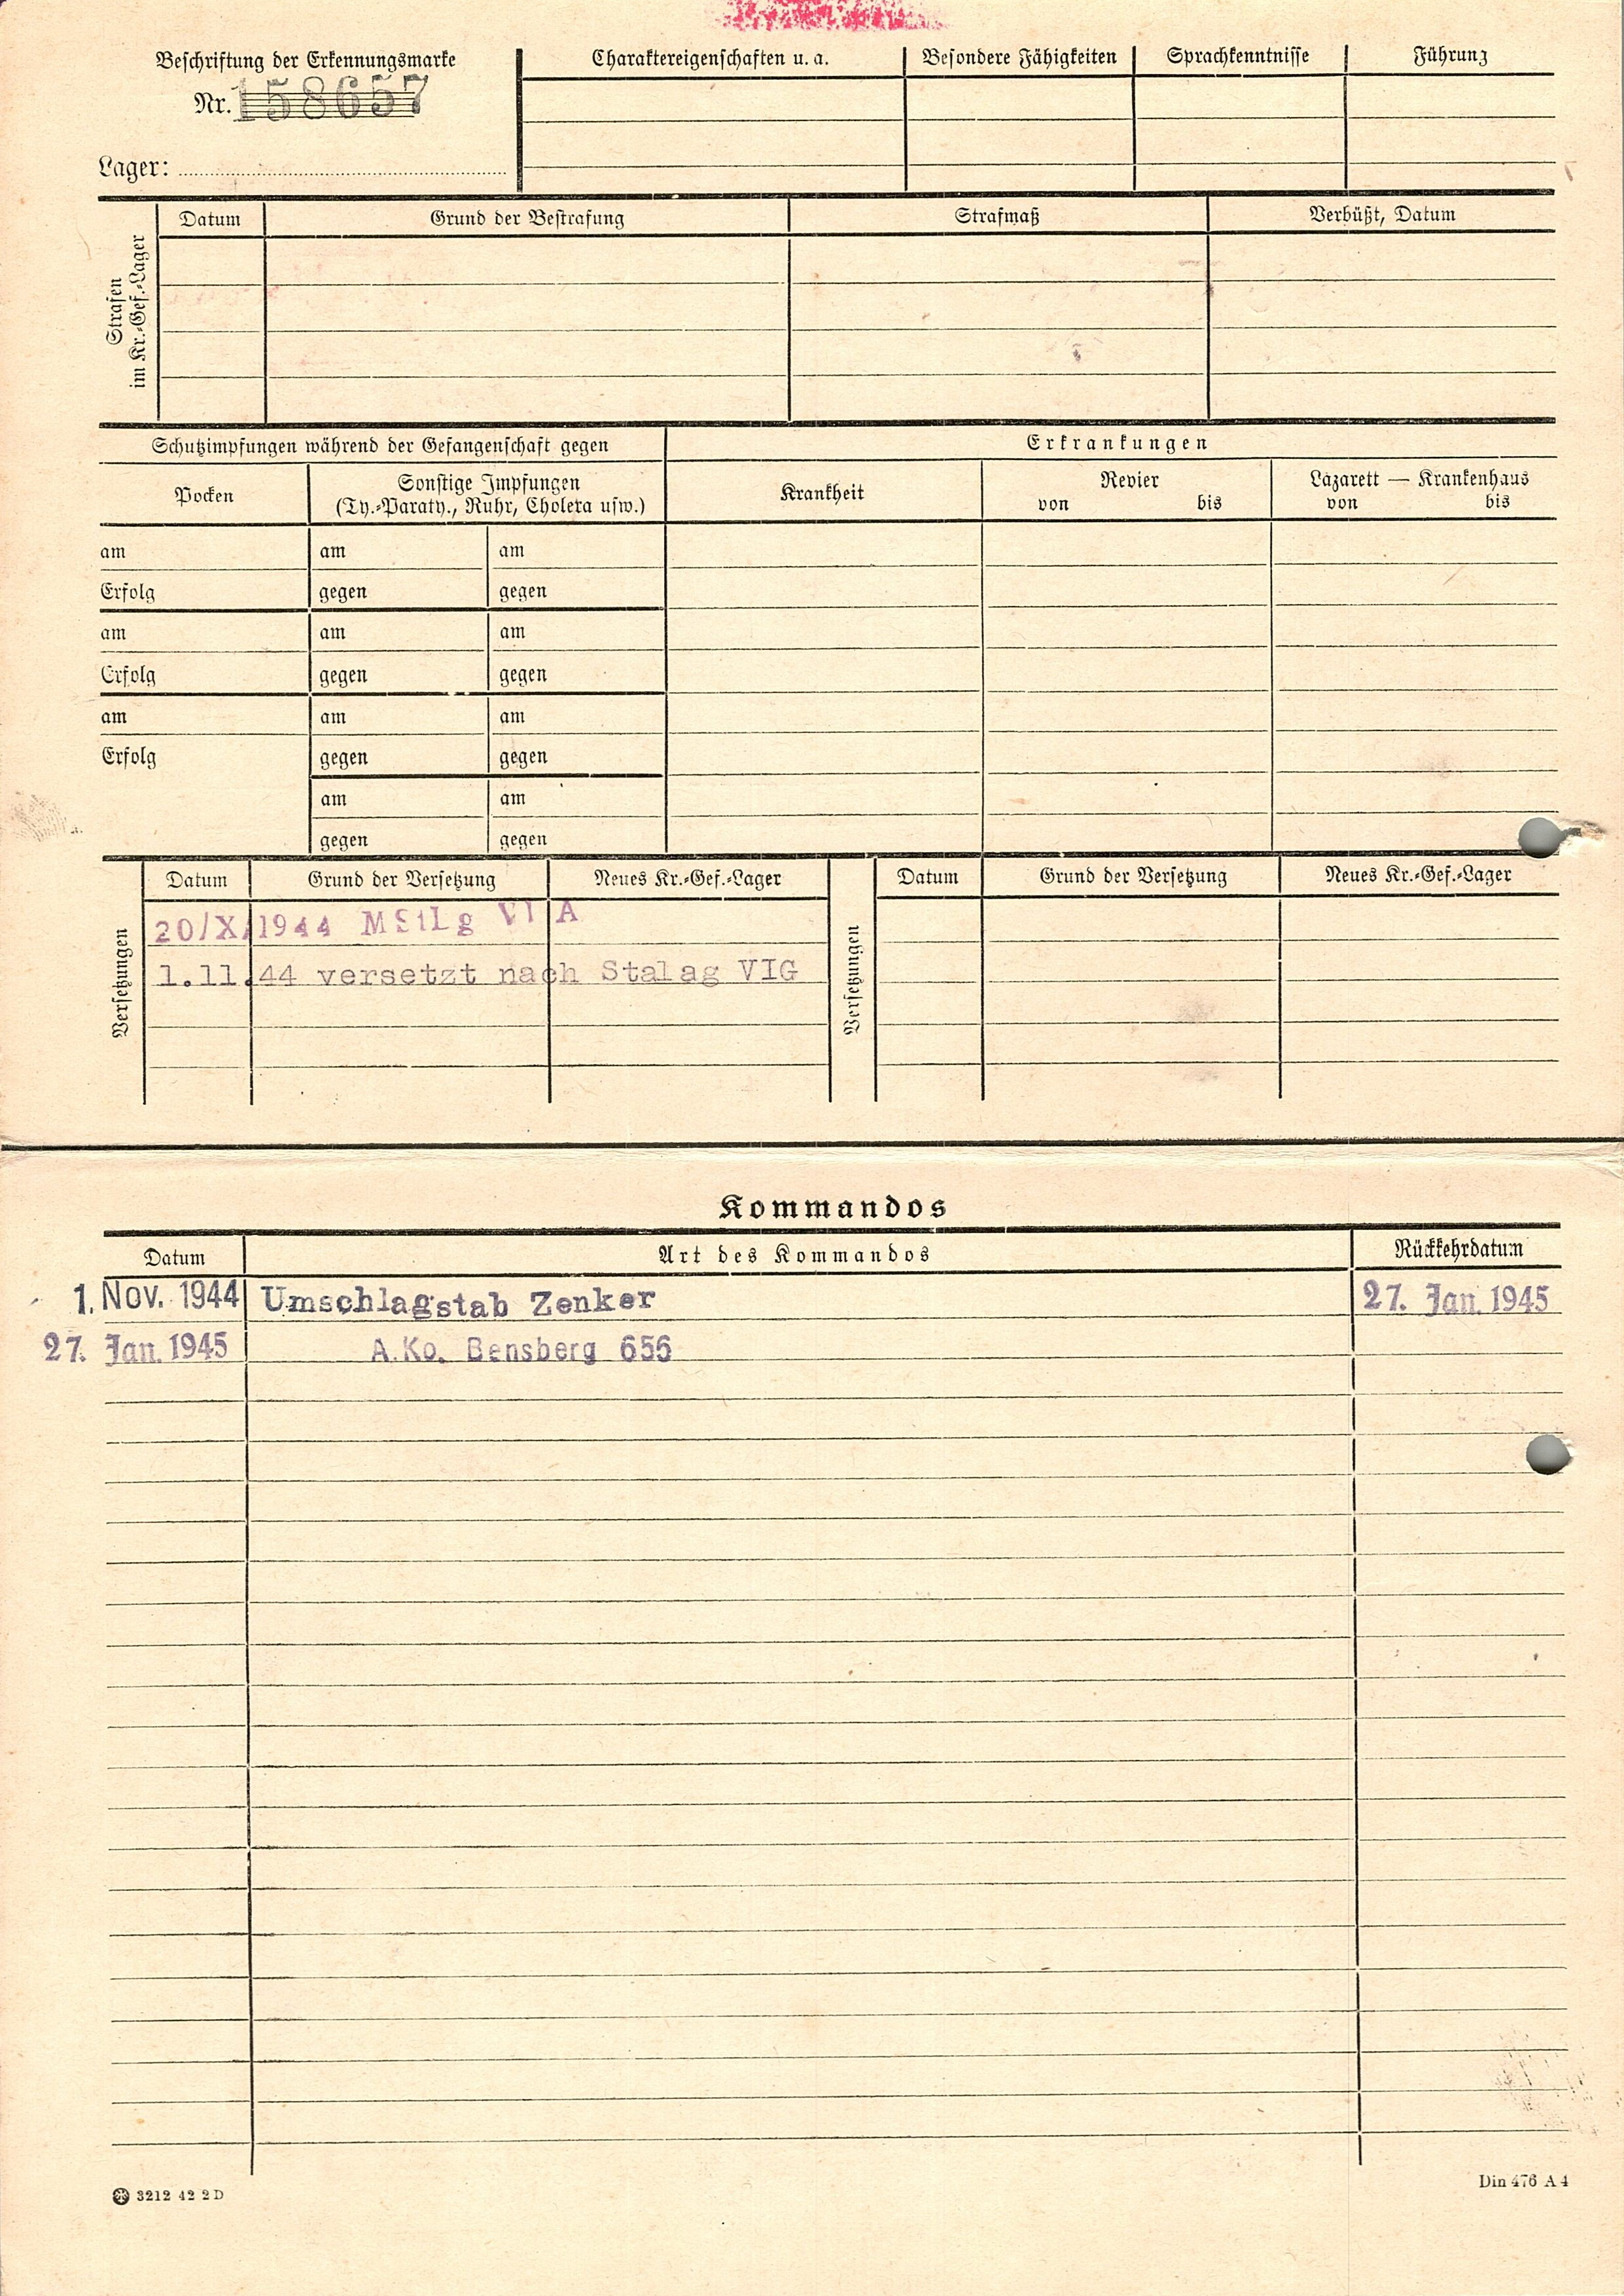 Beschriftung der Erkennungsmarke
Nr. 158657
Lager:
Charaktereigenschaften u. a. Besondere Fähigkeiten Sprachkenntnisse Führung
Strafen
im Kr.-Gef.-Lager
Datum Grund der Bestrafung Strafmaß Verbüßt, Datum
Schutzimpfungen während der Gefangenschaft gegen Erkrankungen
Pocken Sonstige Impfungen
(Ty.-Paraty., Ruhr, Cholera usw.)
Krankheit Revier Lazarett — Krankenhaus
von bis von bis
am am am
Erfolg gegen gegen
am am am
Erfolg gegen gegen
am am am
Erfolg gegen gegen
am am
gegen gegen
Versetzungen
Datum Grund der Versetzung Neues Kr.-Gef.-Lager
20/X/1944 MStLg VI A
1.11.44 versetzt nach Stalag VIG
Versetzungen
Datum Grund der Versetzung Neues Kr.-Gef.-Lager
Kommandos
Datum Art des Kommandos Rückkehrdatum
1. Nov. 1944 Umschlagstab Zenker 27. Jan. 1945
27. Jan. 1945 A.Ko. Bensberg 656
3212 42 2 D Din 476 A 4